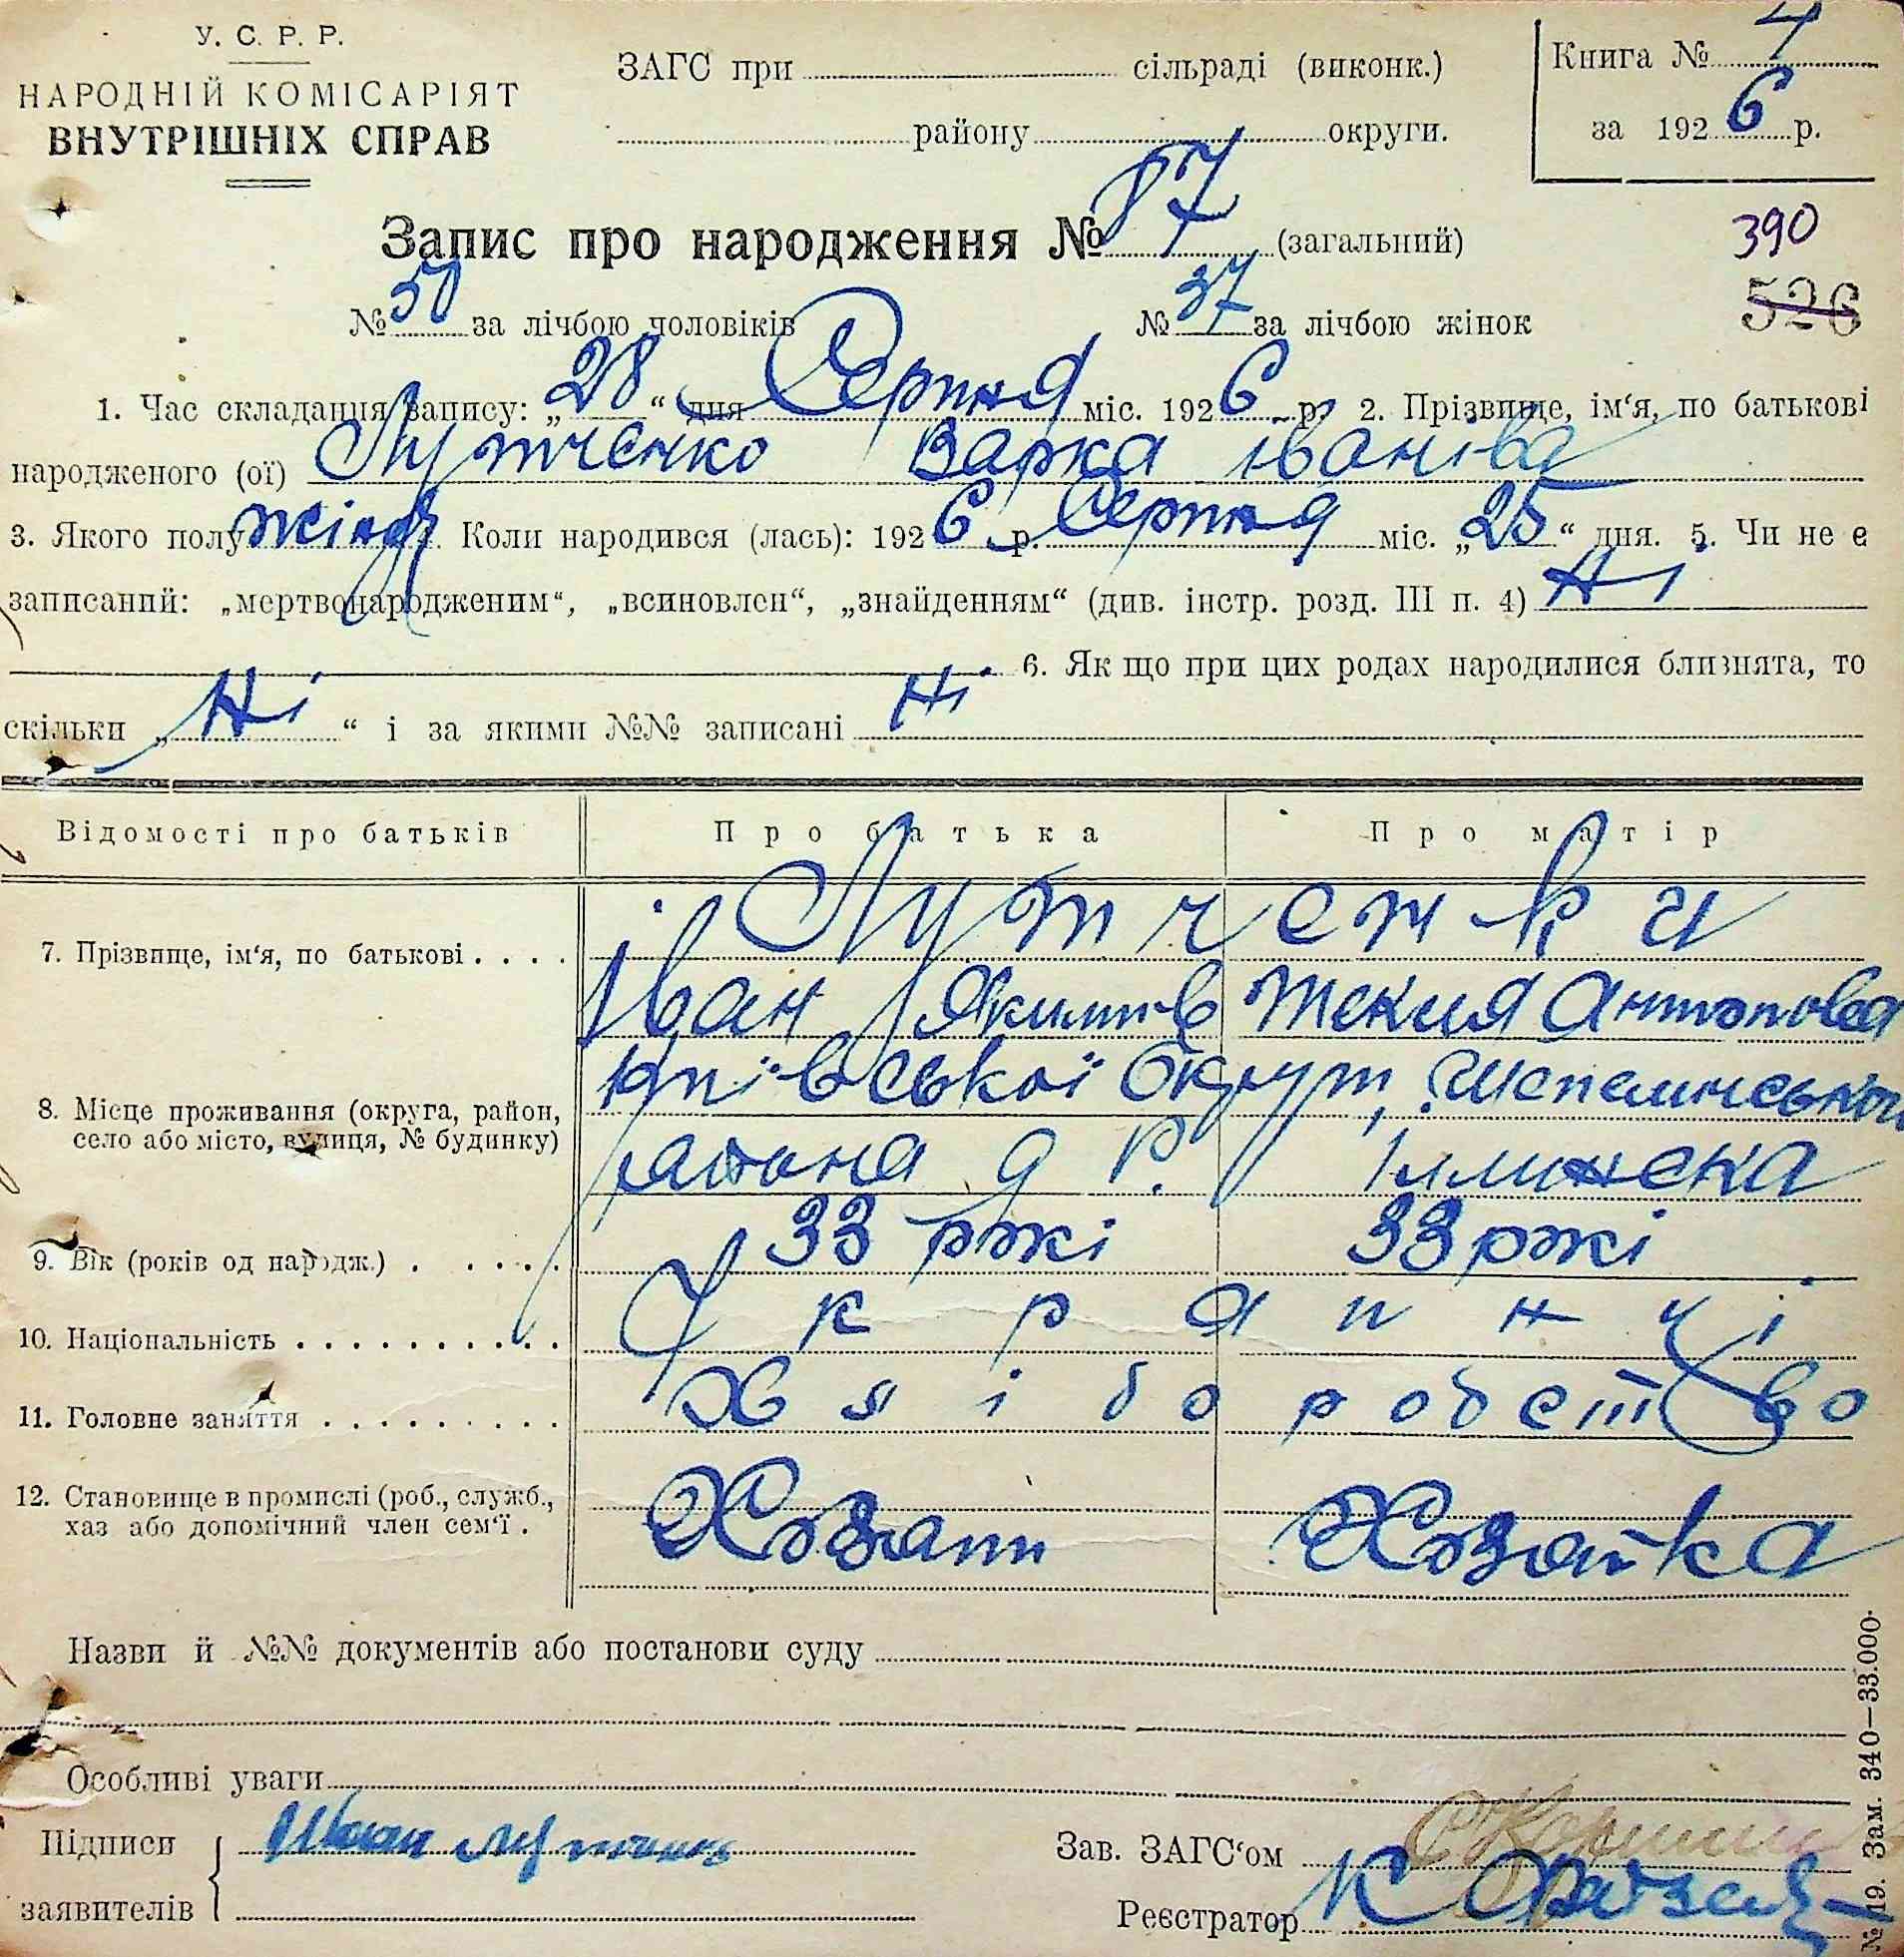 У. С. Р. Р.
НАРОДНІЙ КОМІСАРІЯТ
ВНУТРІШНІХ СПРАВ
ЗАГС при сільраді (виконк.)
району округи.
Книга № 4
за 1926 р.
Запис про народження № 87 (загальний)
390
526
№ 50 за лічбою чоловіків № 37 за лічбою жінок
1. Час складання запису: „28“ дня Серпня міс. 1926 р. 2. Прізвище, ім‘я, по батькові
народженого (ої) Лутченко Варка Іванівна
3. Якого полу жіноч. Коли народився (лась): 1926 р. Серпня міс. „25“ дня. 5. Чи не є
записаний: „мертвонародженим“, „всиновлен“, „знайденням“ (див. інстр. розд. III п. 4) Ні
6. Як що при цих родах народилися близнята, то
скільки „Ні“ і за якими №№ записані Ні
Відомості про батьків Про батька Про матір
7. Прізвище, ім‘я, по батькові . . . . Лутченки
Іван Якимов Текля Антонова
8. Місце проживання (округа, район,
село або місто, вулиця, № будинку)
Київської Округи,
района
9. Вік (років од народж.) . . . . . 33 рокі 33 рокі
10. Національність . . . . . . . . . . Украинці
11. Головне заняття . . . . . . . . . Хліборобство
12. Становище в промислі (роб., служб.,
хаз або допомічний член сем‘ї .
Хозяин Хозяйка
Назви й №№ документів або постанови суду
Особливі уваги
Підписи
заявителів
Иван
Зав. ЗАГС‘ом
Реєстратор
№ 19. Зам. 340—33.000.